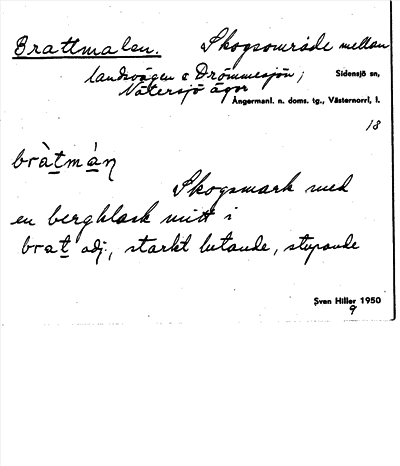 Brattmalen. Skogsområde mellan
landsvägen o Drömmesjön; Sidensjö sn,
Nätersjö ägor
Ångermanl. n. doms. tg., Västernorrl. l.
18
bràt̲m̲áṇ
Skogsmark med
en bergklack mitt i
brat̲ adj., starkt lutande, stupande
Sven Hiller 1950
9